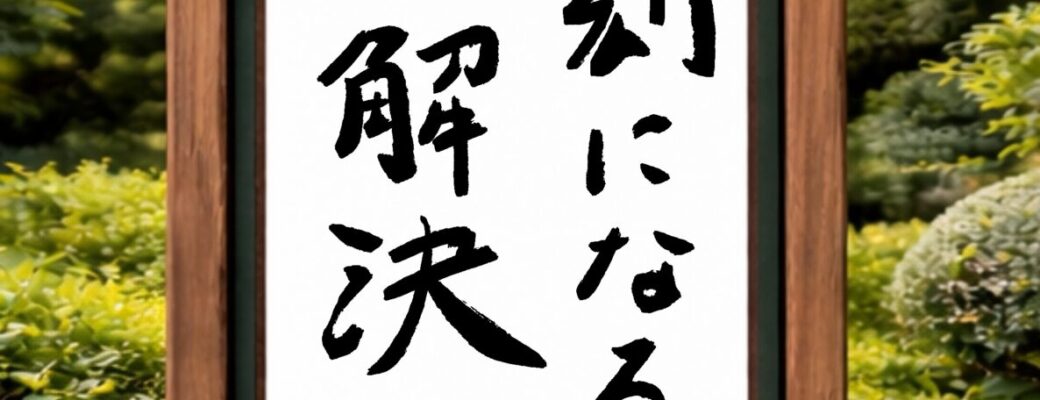 刻になる
解決